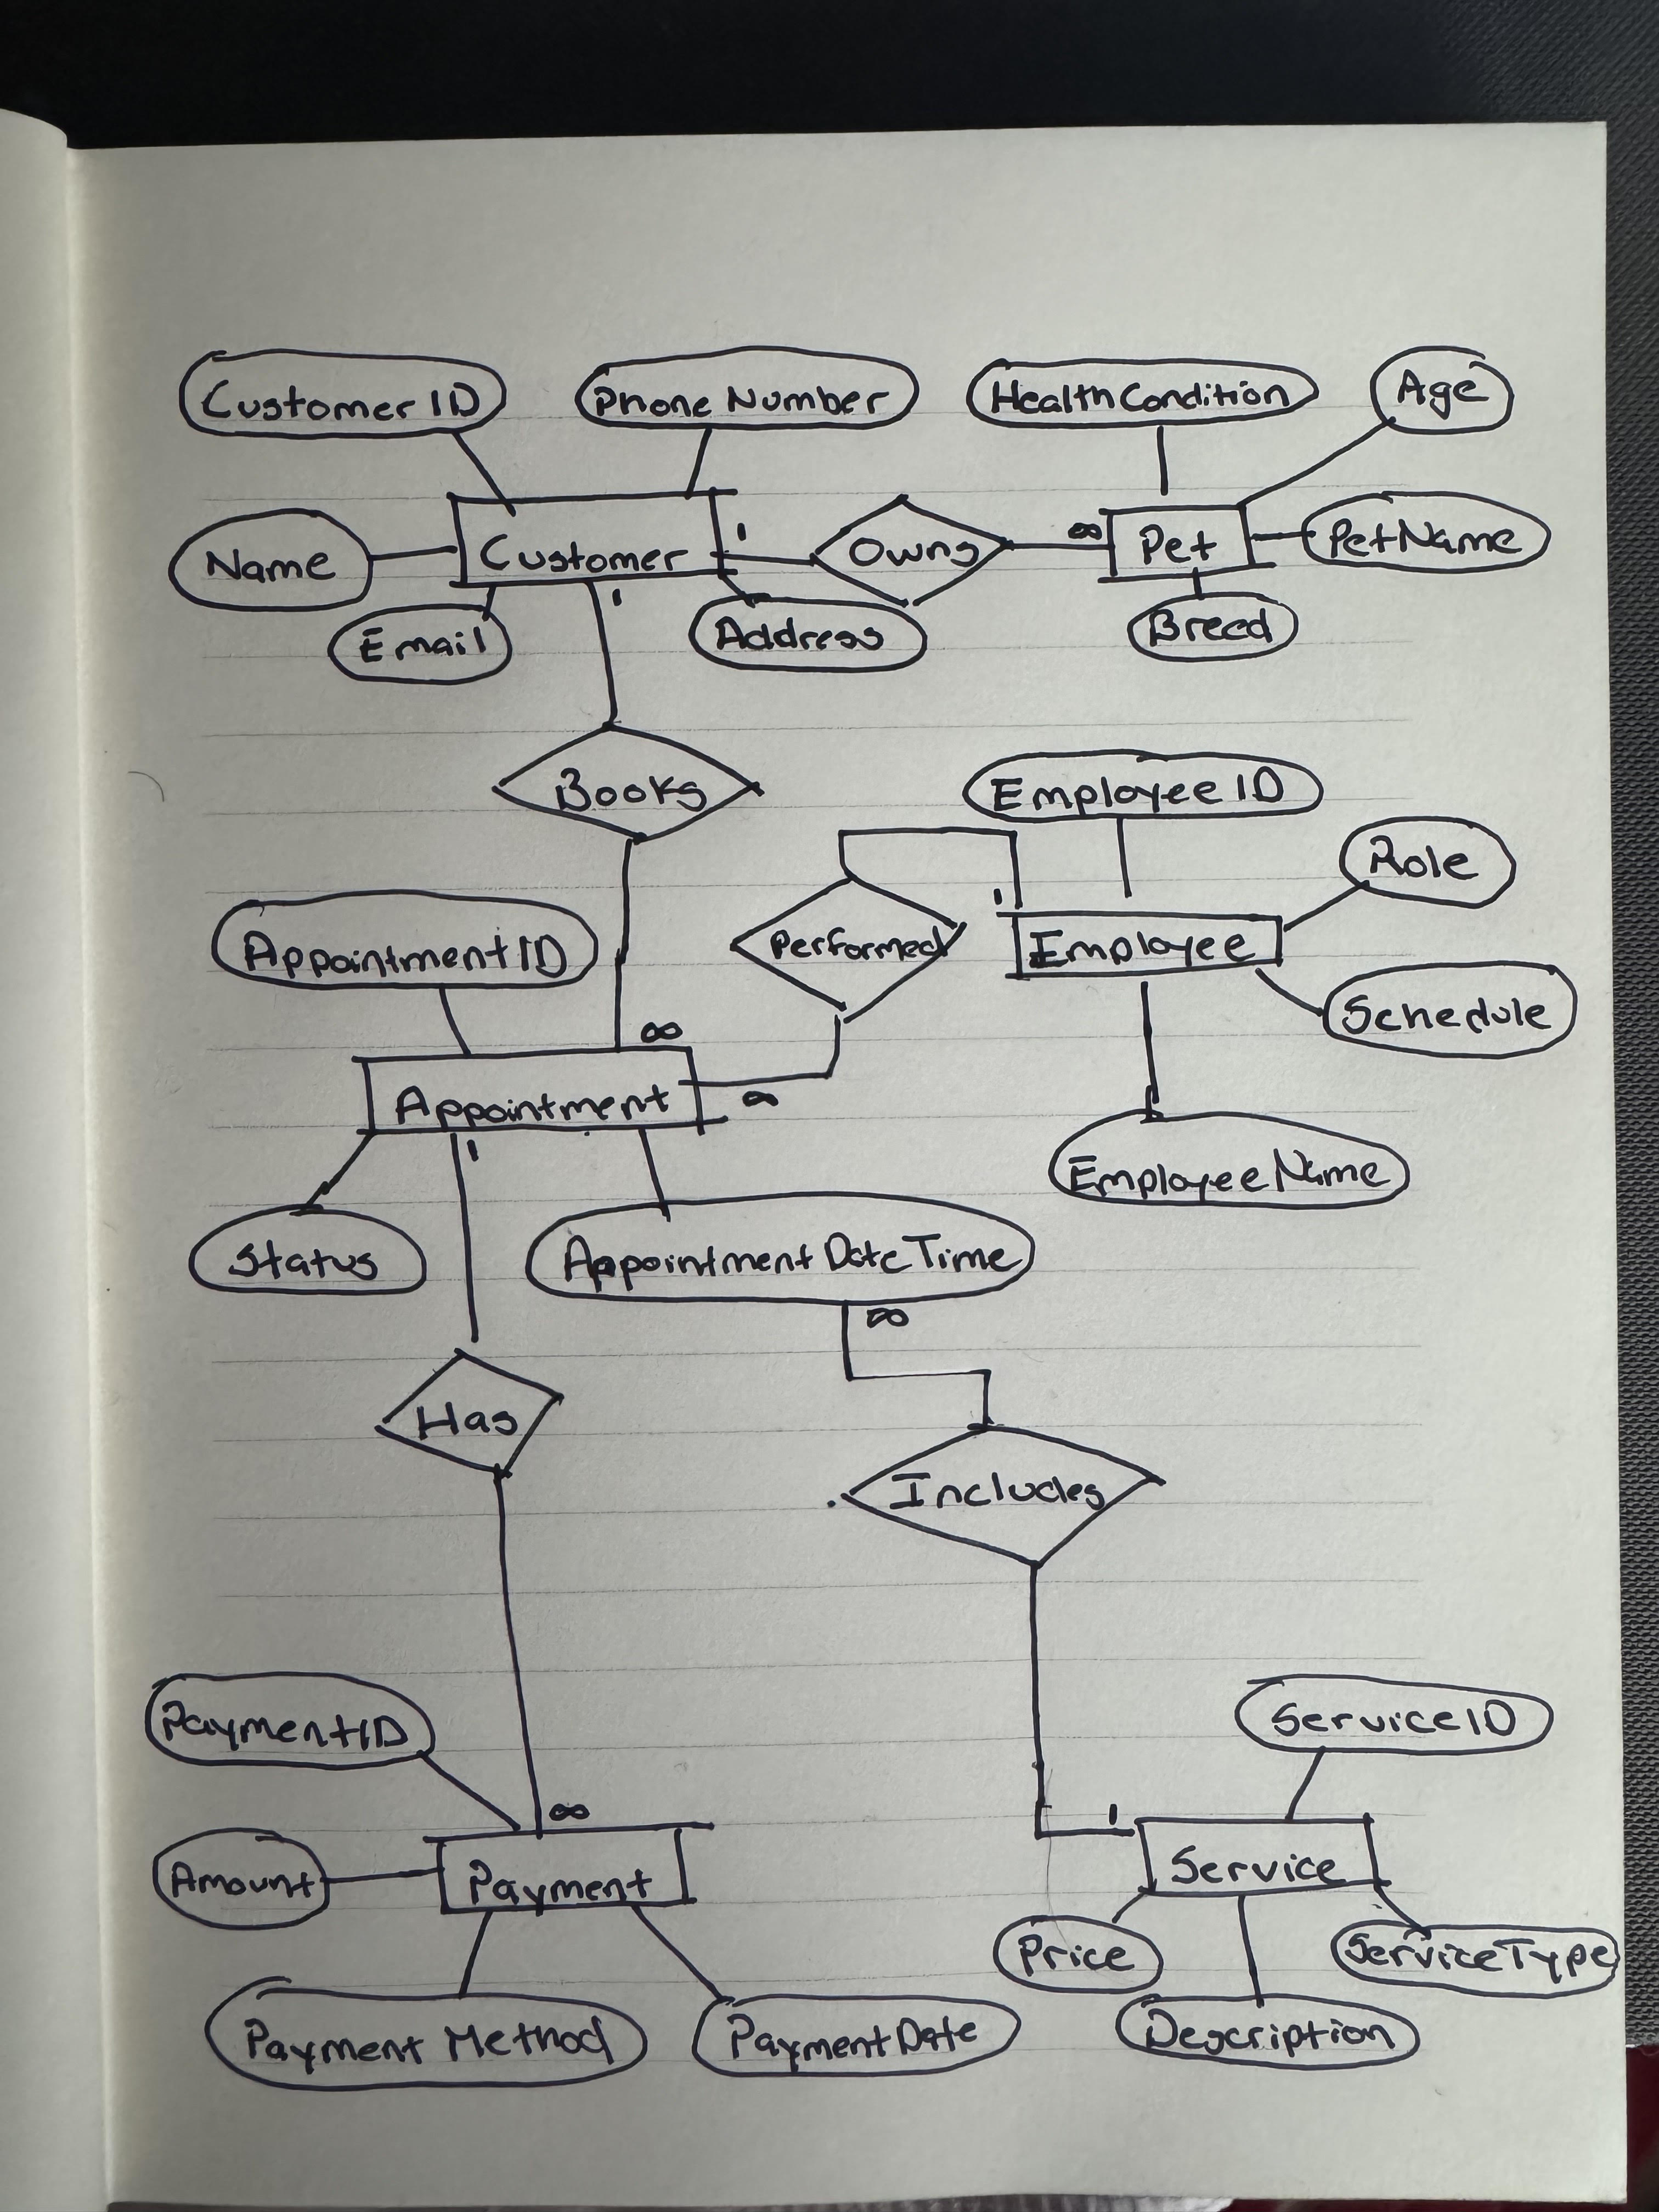 CustomerID
Phone Number
HealthCondition
Age
Name
Customer
1
Owns
∞
Pet
PetName
Email
1
Address
Breed
Books
EmployeeID
Role
AppointmentID
Performed
1
Employee
Schedule
∞
Appointment
∞
1
EmployeeName
Status
AppointmentDateTime
∞
Has
Includes
PaymentID
ServiceID
∞
1
Amount
Payment
Service
Price
ServiceType
Payment Method
PaymentDate
Description